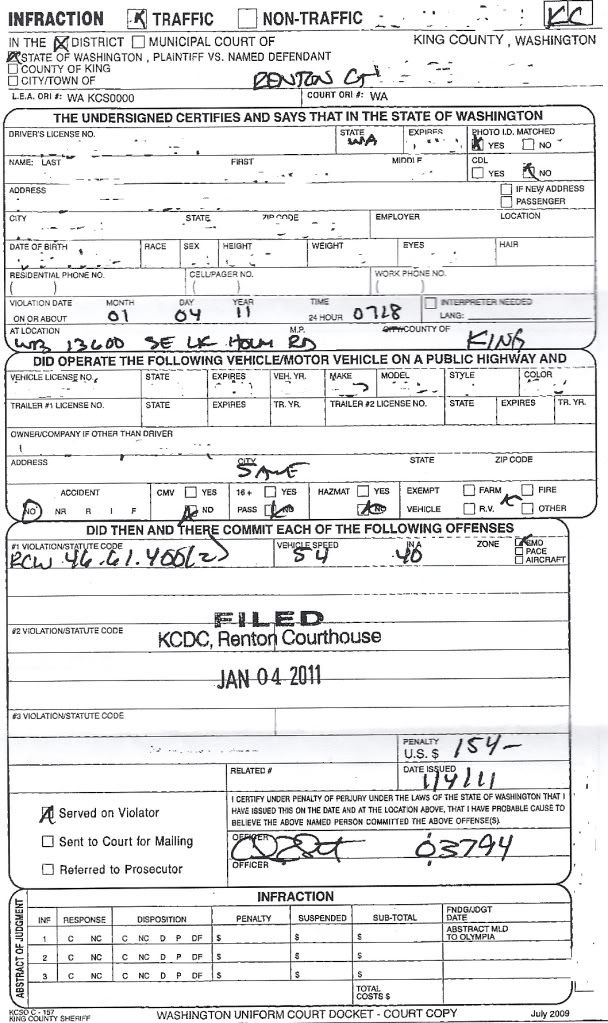 INFRACTION TRAFFIC NON-TRAFFIC KC
IN THE DISTRICT MUNICIPAL COURT OF KING COUNTY, WASHINGTON
STATE OF WASHINGTON, PLAINTIFF VS. NAMED DEFENDANT
COUNTY OF KING
CITY/TOWN OF RENTON
L.E.A. ORI #: WA KCS0000 COURT ORI #: WA
THE UNDERSIGNED CERTIFIES AND SAYS THAT IN THE STATE OF WASHINGTON
DRIVER'S LICENSE NO. STATE EXPIRES PHOTO I.D. MATCHED
WA YES NO
NAME: LAST FIRST MIDDLE CDL
YES NO
ADDRESS IF NEW ADDRESS
PASSENGER
CITY STATE ZIP CODE EMPLOYER LOCATION
DATE OF BIRTH RACE SEX HEIGHT WEIGHT EYES HAIR
RESIDENTIAL PHONE NO. CELL/PAGER NO. WORK PHONE NO.
( ) ( ) ( )
VIOLATION DATE MONTH DAY YEAR TIME INTERPRETER NEEDED
ON OR ABOUT 01 04 11 24 HOUR 0728 LANG:
AT LOCATION M.P. CITY/COUNTY OF
WB 13600 SE LK HOLM RD KING
DID OPERATE THE FOLLOWING VEHICLE/MOTOR VEHICLE ON A PUBLIC HIGHWAY AND
VEHICLE LICENSE NO. STATE EXPIRES VEH. YR. MAKE MODEL STYLE COLOR
TRAILER #1 LICENSE NO. STATE EXPIRES TR. YR. TRAILER #2 LICENSE NO. STATE EXPIRES TR. YR.
OWNER/COMPANY IF OTHER THAN DRIVER
ADDRESS CITY STATE ZIP CODE
SAME
ACCIDENT CMV YES 16+ YES HAZMAT YES EXEMPT FARM FIRE
NO NR R I F NO PASS NO NO VEHICLE R.V. OTHER
DID THEN AND THERE COMMIT EACH OF THE FOLLOWING OFFENSES
#1 VIOLATION/STATUTE CODE VEHICLE SPEED IN A ZONE SMD
RCW 46.61.400(2) 54 40 PACE
AIRCRAFT
FILED
#2 VIOLATION/STATUTE CODE KCDC, Renton Courthouse
JAN 04 2011
#3 VIOLATION/STATUTE CODE
PENALTY
U.S. $ 154-
RELATED # DATE ISSUED
1/4/11
Served on Violator
Sent to Court for Mailing
Referred to Prosecutor
I CERTIFY UNDER PENALTY OF PERJURY UNDER THE LAWS OF THE STATE OF WASHINGTON THAT I
HAVE ISSUED THIS ON THE DATE AND AT THE LOCATION ABOVE, THAT I HAVE PROBABLE CAUSE TO
BELIEVE THE ABOVE NAMED PERSON COMMITTED THE ABOVE OFFENSE(S).
OFFICER 03794
OFFICER
ABSTRACT OF JUDGMENT
INFRACTION
INF RESPONSE DISPOSITION PENALTY SUSPENDED SUB-TOTAL FNDG/JDGT DATE
1 C NC C NC D P DF $ $ $ ABSTRACT MLD TO OLYMPIA
2 C NC C NC D P DF $ $ $
3 C NC C NC D P DF $ $ $
TOTAL COSTS $
KCSO C - 157
KING COUNTY SHERIFF WASHINGTON UNIFORM COURT DOCKET - COURT COPY July 2009